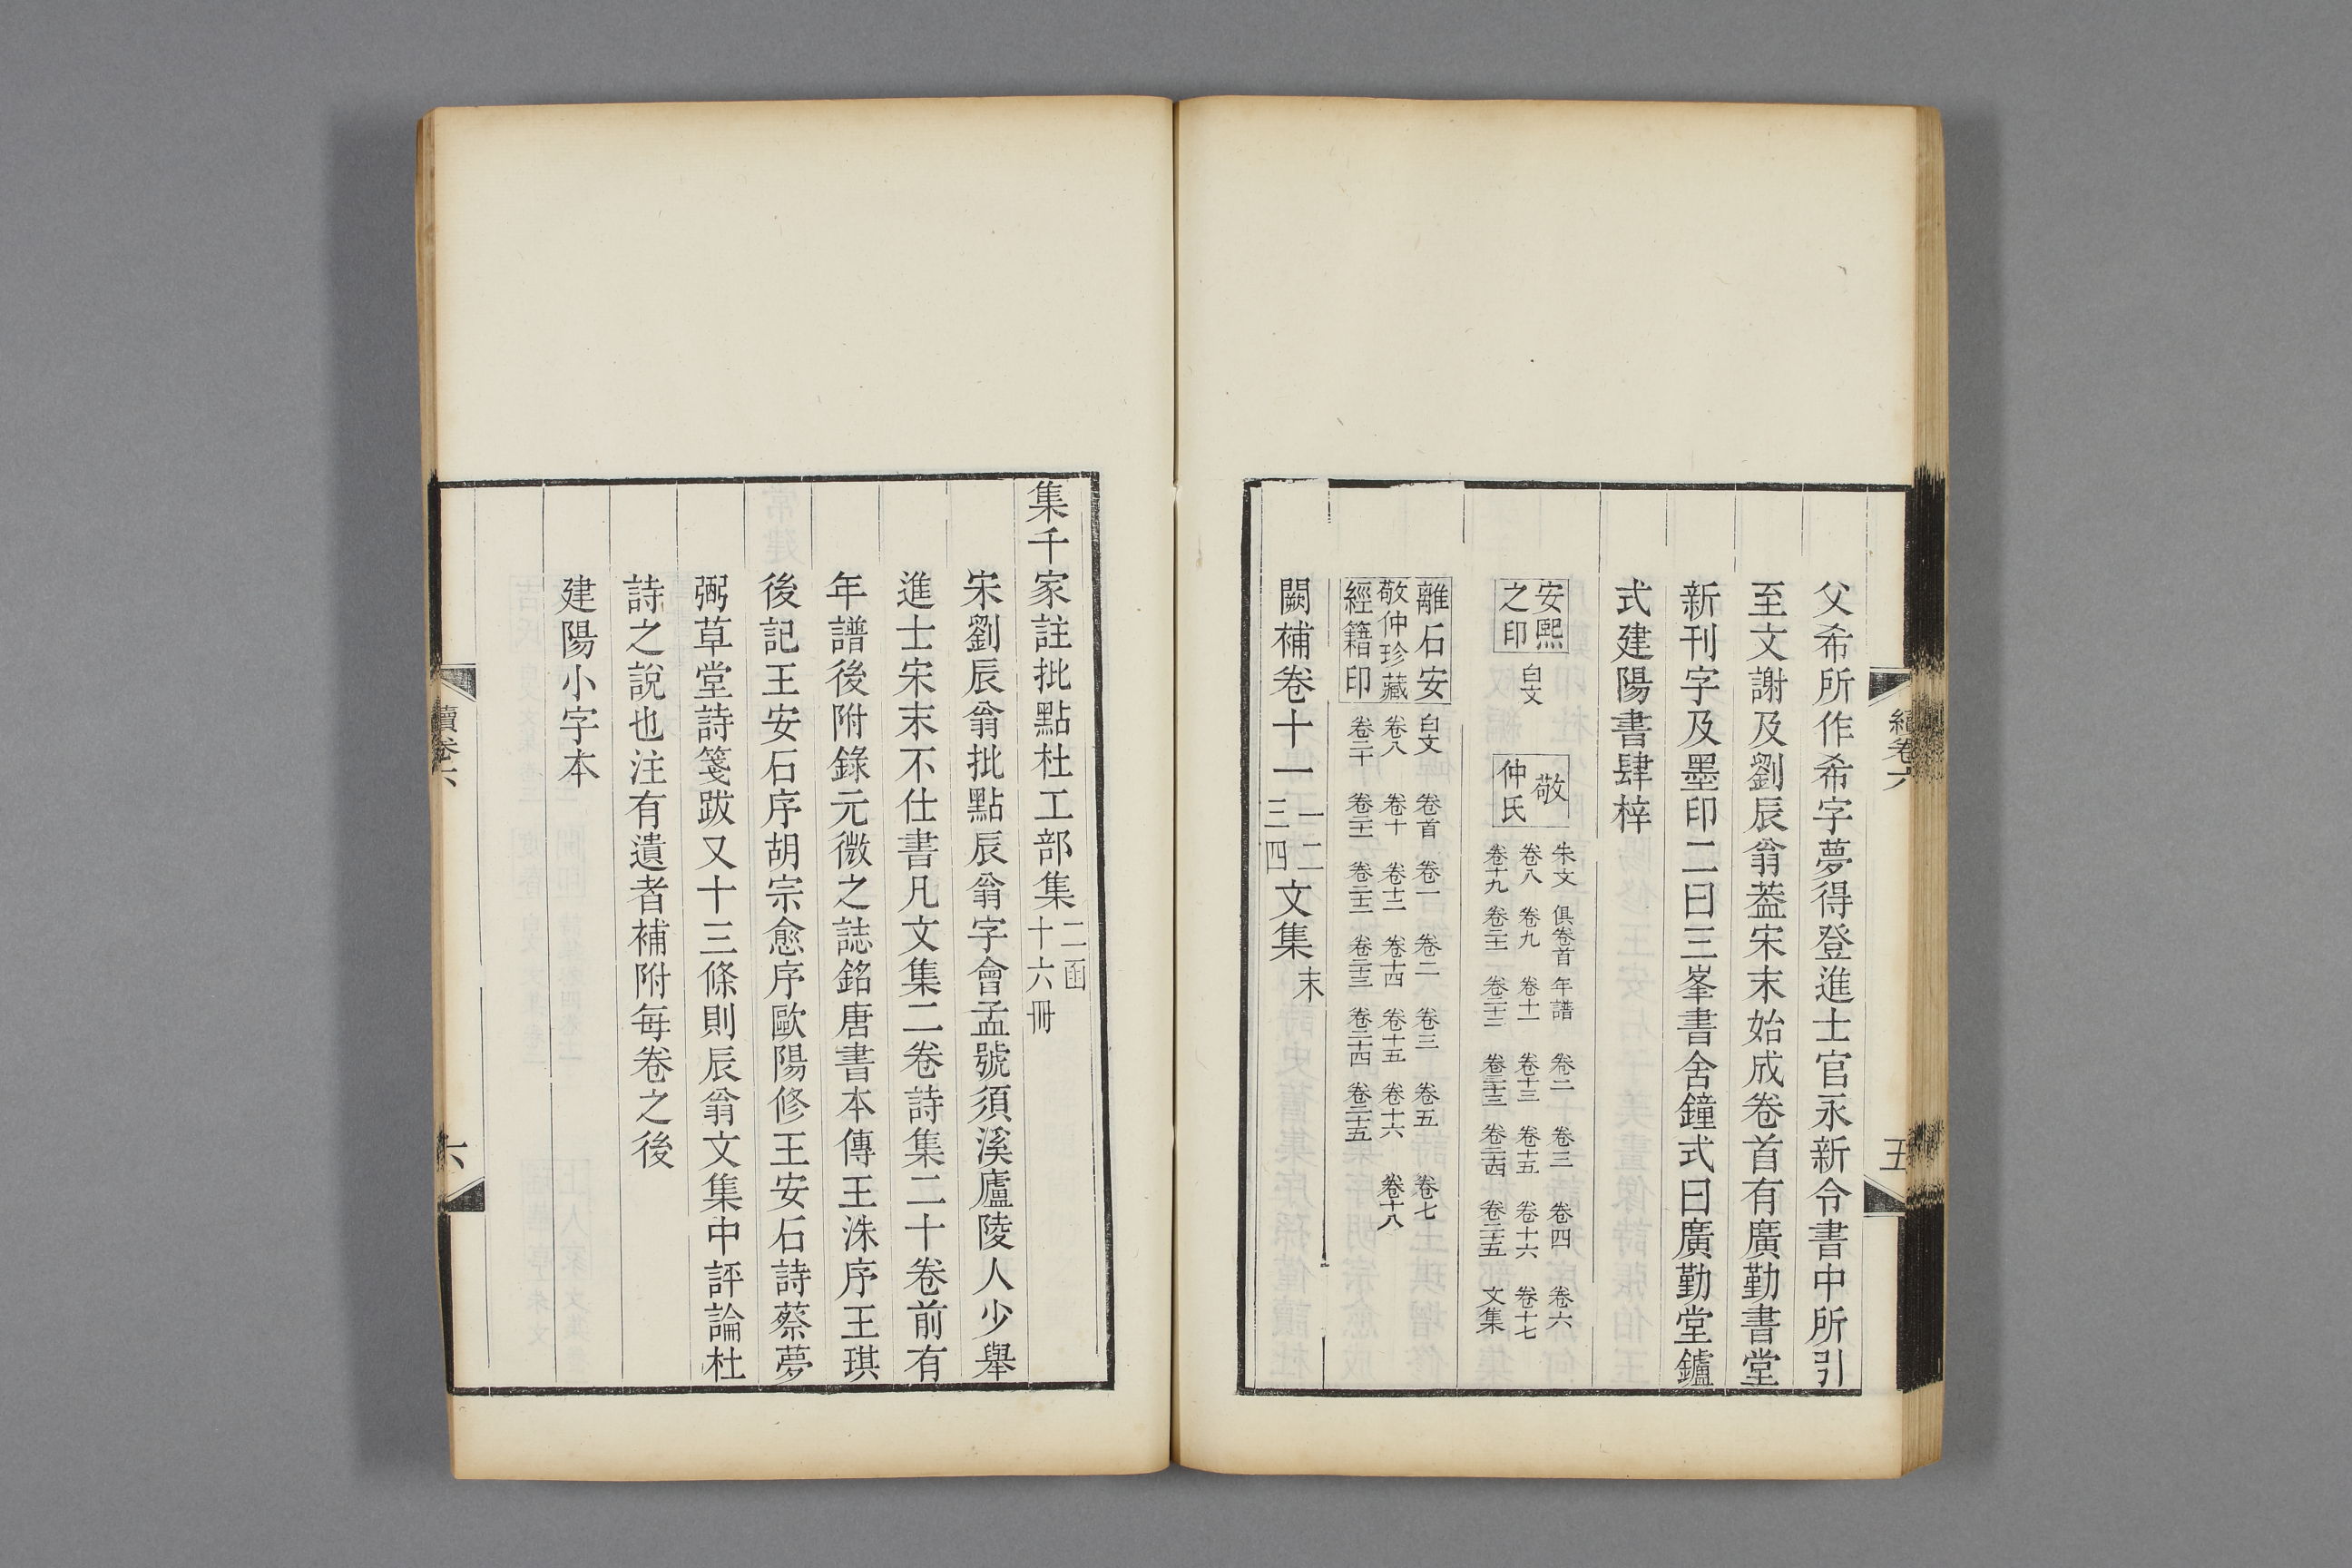 父希所作希字夢得登進士官永新令書中所引
至文謝及劉辰翁葢宋末始成卷首有廣勤書堂
新刊字及墨印二曰三峯書舍鐘式曰廣勤堂鑪
式建陽書肆梓
安熙之印 白文 敬仲氏 朱文 俱卷首 年譜 卷二 卷三 卷四 卷六
卷八 卷九 卷十一 卷十三 卷十五 卷十六 卷十七
卷十九 卷二十一 卷二十二 卷二十三 卷二十四 卷二十五 文集
離石安敬仲珍藏經籍印 白文 卷首 卷一 卷二 卷三 卷五 卷七
卷八 卷十 卷十二 卷十四 卷十五 卷十六 卷十八
卷二十 卷二十一 卷二十二 卷二十三 卷二十四 卷二十五
闕補卷十一 一二三四 文集 末
續卷六
五
集千家註批點杜工部集 二函十六冊
宋劉辰翁批點辰翁字會孟號須溪廬陵人少舉
進士宋末不仕書凡文集二卷詩集二十卷前有
年譜後附錄元微之誌銘唐書本傳王洙序王琪
後記王安石序胡宗愈序歐陽修王安石詩蔡夢
弼草堂詩箋跋又十三條則辰翁文集中評論杜
詩之說也注有遺者補附每卷之後
建陽小字本
續卷六
六